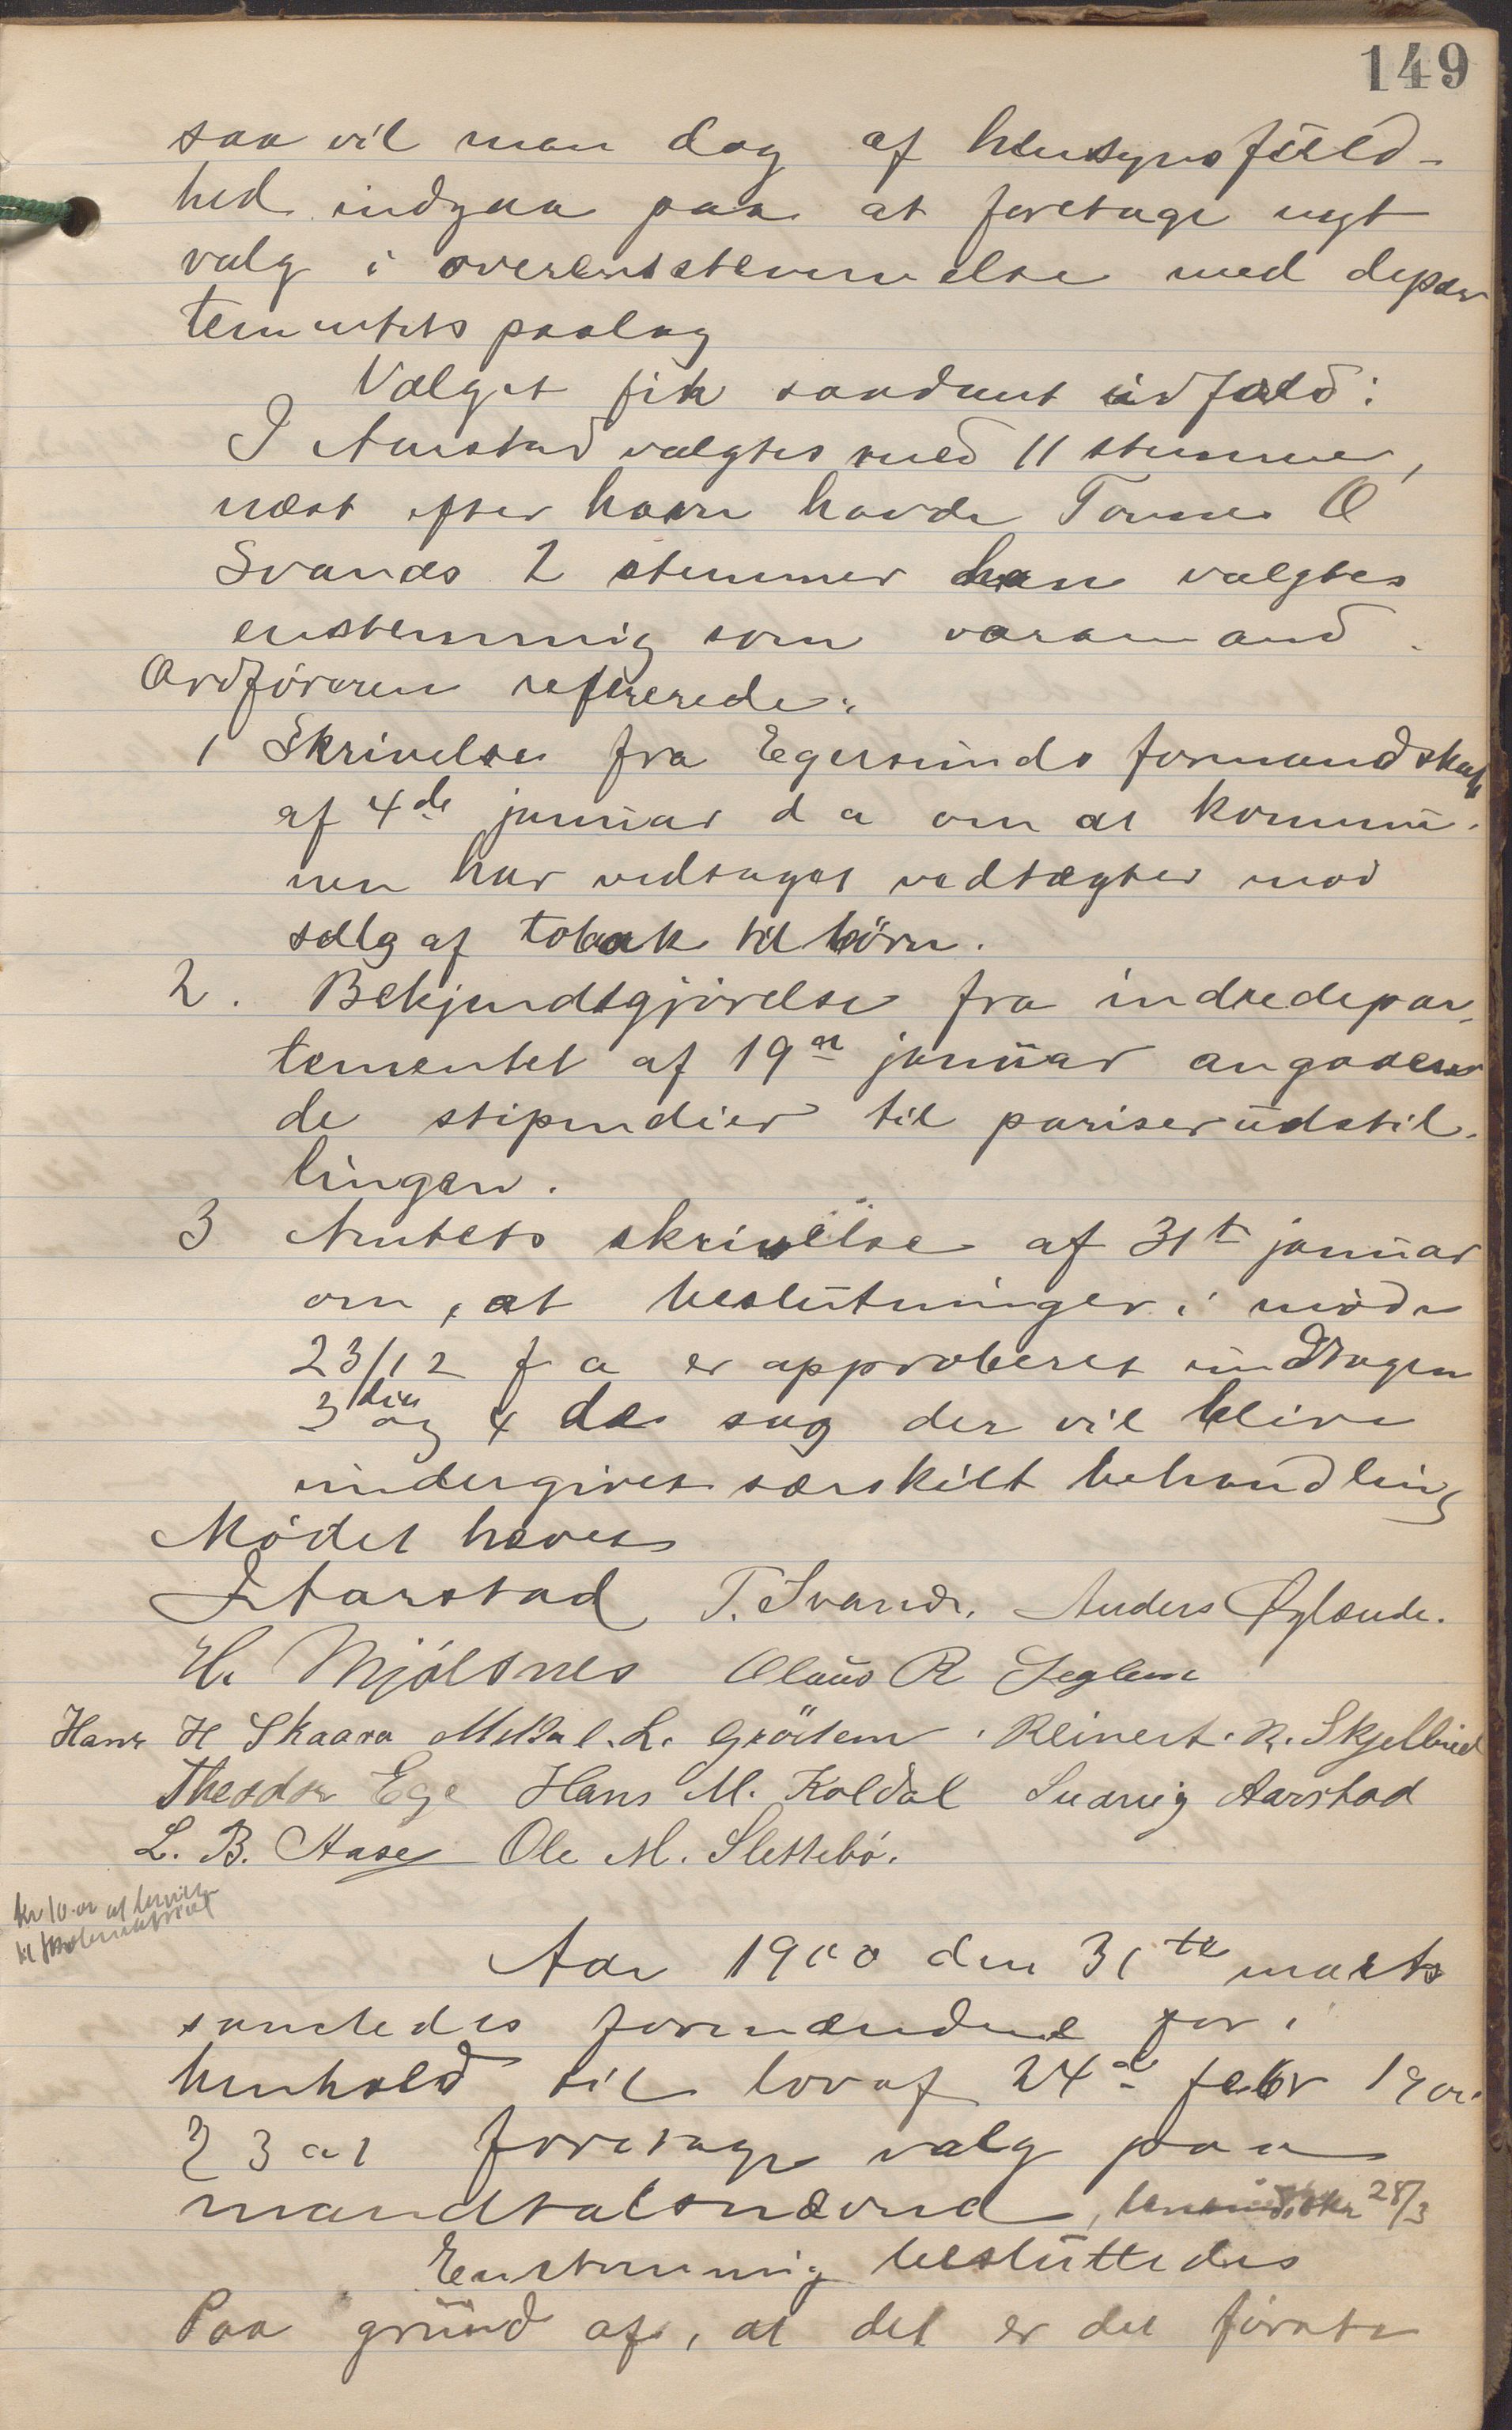 149
saa vil man dog af hensynsfuld-
hed indgaa paa at foretage nyt
valg i overensstemmelse med depar
tementets paalæg
Valget fik saadant udfald:
I Aarstad valgtes med 11 stemmer,
næst efter ham havde Tønnes O
Svanes 2 stemmer han valgtes
enstemmig som varamand.
Ordføreren refererede:
1 Skrivelse fra Egersunds formandskab
af 4de januar d a om at kommu-
nen har vedtaget vedtægter mod
salg af tobak til børn.
2. Bekjendtgjørelse fra indredepar-
tementet af 19de januar angaaen
de stipendier til pariserudstil-
lingen.
3 Amtets skrivelse af 31te januar
om, at beslutninger i møde
23/12 f a er approberet undtagen
3die og 4de sag der vil blive
undergivet særskilt behandling
Mødet hævet
I Aarstad T. Svanes. Anders Øglænde.
H. Mjølsnes Olaus R Seglem
Hans H Skaara Mikal. L. Grödem. Reinert. R. Skjelbred
Theodor Ege Hans M. Koldal Ludvig Aarstad
L. B. Aase Ole M. Slettebø.
kr 10.00 at
til skolemateriel
Aar 1900 den 31te marts
samledes formændene for i
henhold til lov af 24de febr 1900
§ 3 at foretage valg paa
mandtalsnævnd, 28/3
Enstemmig besluttedes
Paa grund af, at det er det første